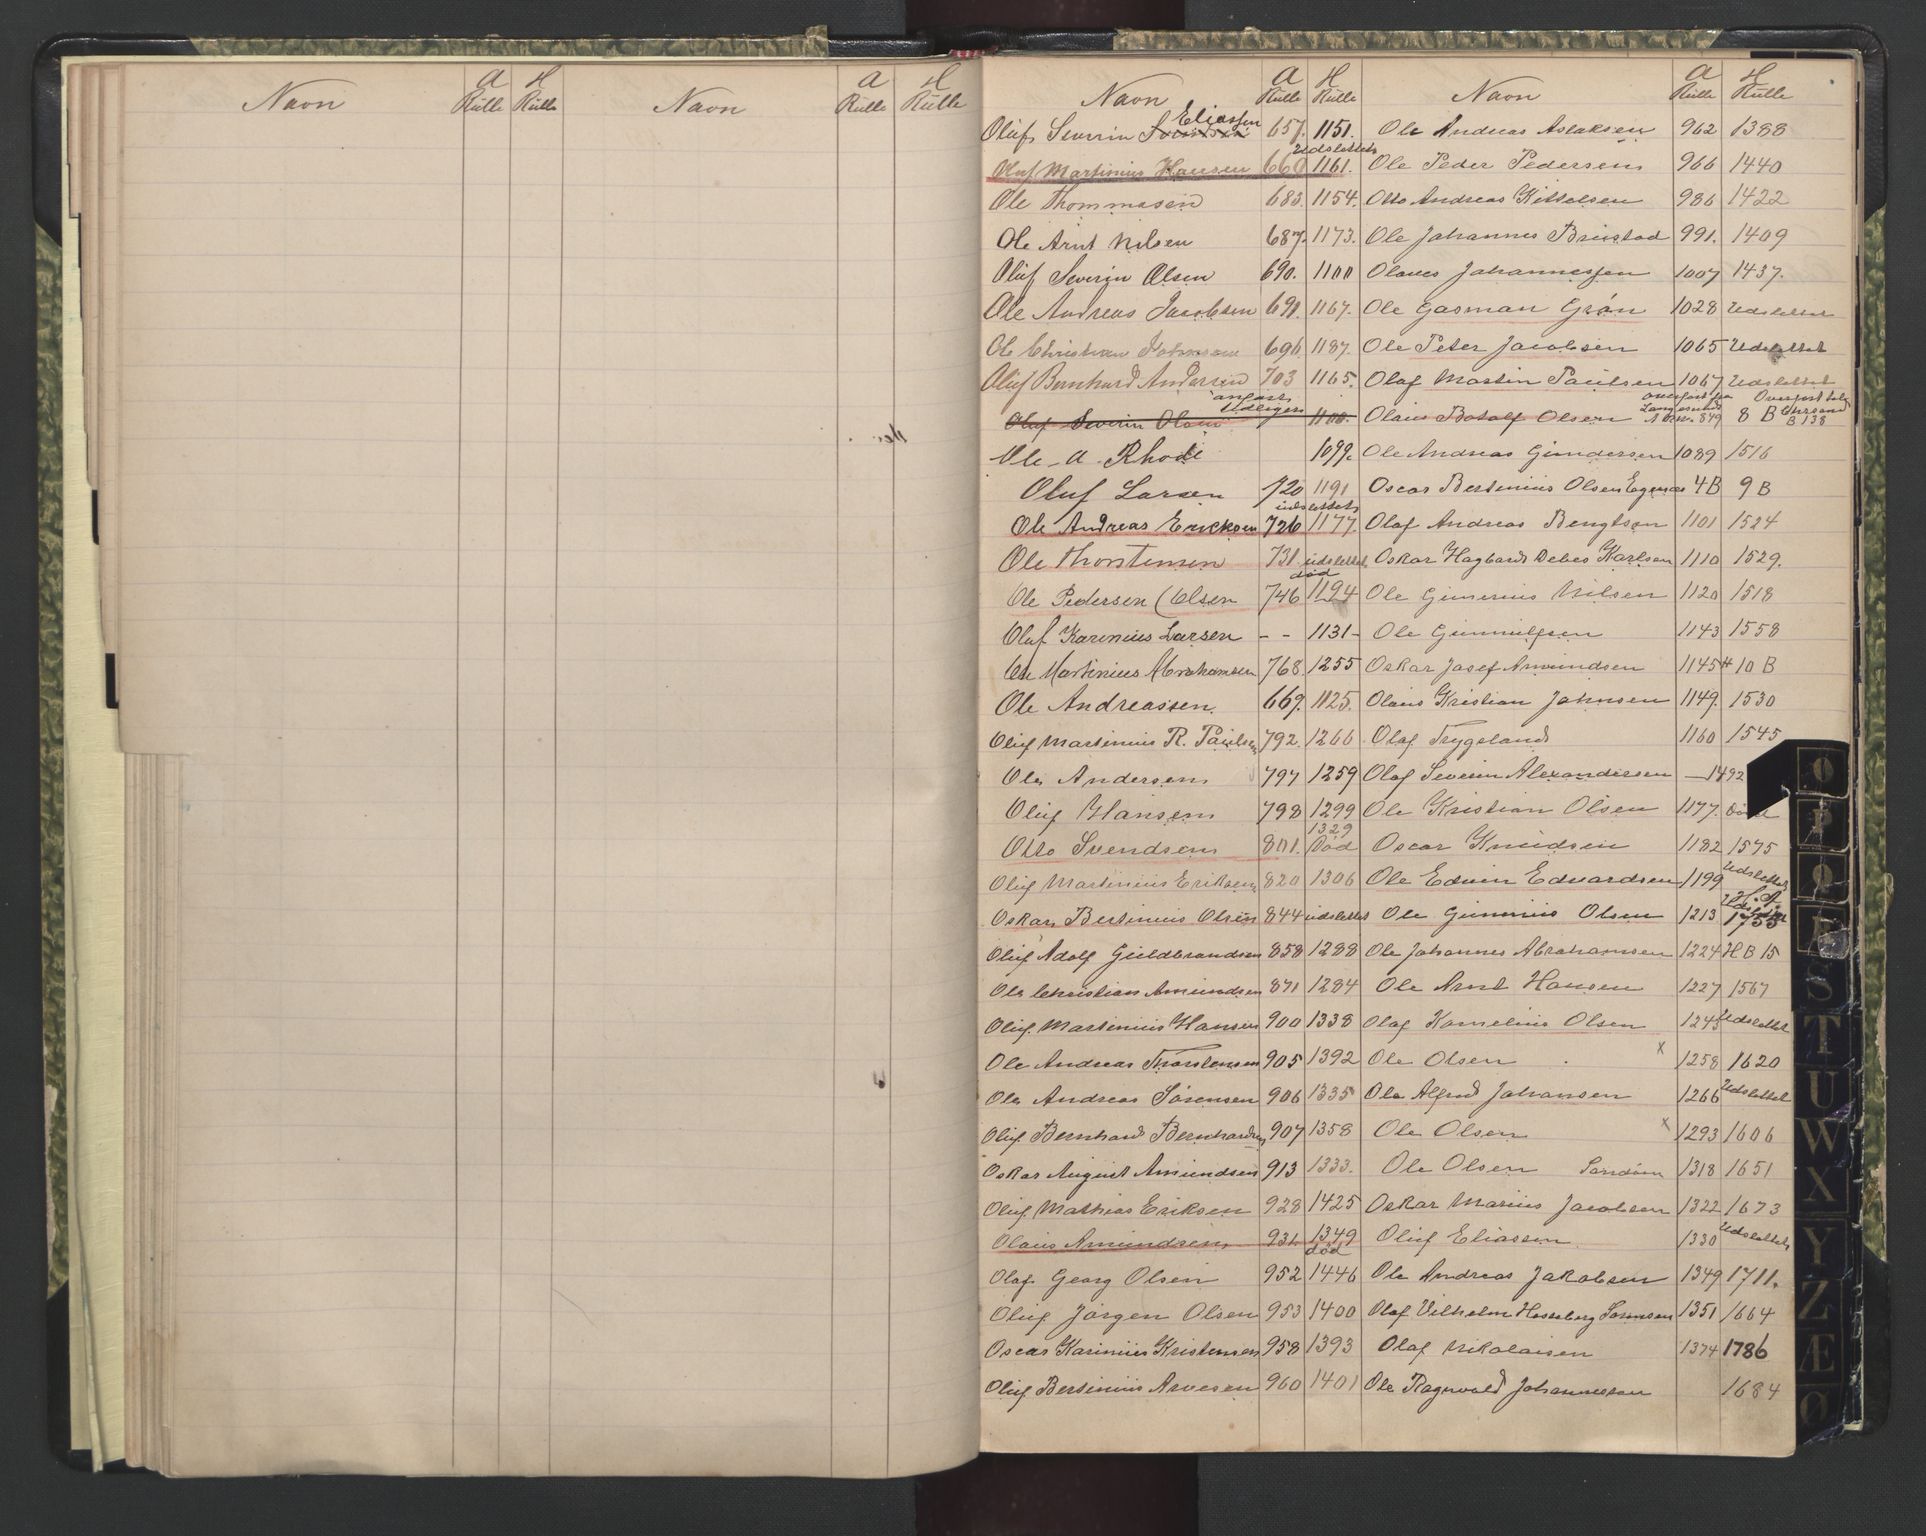 Navn A Rulle H Rulle Navn A Rulle H Rulle
Navn A Rulle H Rulle Navn A Rulle H Rulle
Eliassen
Oluf Severin 657. 1151. Ole Andreas Aslaksen 962 1388
Udslettet
Oluf Martinius Hansen 660 1161. Ole Peder Pedersen 966 1440
Ole Thommasen 683. 1154. Otto Andreas Kittelsen 986 1422
Ole Arnt Nilsen 687. 1173. Ole Johannes Brustad 991. 1409
Oluf Severin Olsen 690. 1100 Olaves Johannessen 1007 1437.
Ole Andreas Jacobsen 691. 1167. Ole Gasman Grøn 1028 Udslettet
Ole Christian Johnsen 696. 1187. Ole Peter Jacobsen 1065 Udslettet
Oluf Bernhard Andersen 703 1165. Olaf Martin Paulsen 1067 Udslettet
Oluf Severin Olsen 1100. Olaus Botolf Olsen overført fra Langesund A No. 849 8 B Overført til Chrsand B 138
Ole A. Rhode 1099. Ole Andreas Gundersen 1089 1516
Oluf Larsen 720 1191 Oscar Bertinius Olsen Egenes 4B 9 B
udslettet
Ole Andreas Ericksen 726 1177. Olaf Andreas Bengtson 1101 1524
Ole Thorstensen 731. udslettet Oskar Hagbard Debes Karlsen 1110 1529.
død
Ole Pedersen (Olsen 746 1194 Ole Gunerius Nilsen 1120 1518
Oluf Karenius Larsen - - 1131 - Ole Gunnulfsen 1143 1558
Ole Martinius Abrahamsen 768. 1255 Oskar Josef Amundsen 1145 H 10 B
Ole Andreassen. 669. 1125. Olaus Kristian Johnsen 1149. 1530
Oluf Martinius R. Paulsen 792. 1266. Olaf Trygsland 1160 1545
Ole Andersen 797 1259 Olaf Severin Alexandersen — 1492
Oluf Hansen 798 1299 Ole Kristian Olsen 1177.
1329
Otto Svendsen 801. Død Oscar Knudsen 1182 1575
Oluf Martinius Eriksen 820 1306 Ole Edvin Edvardsen 1199 Udslettet
Oskar Bertinius Olsen 844 udslettet Ole Gunnius Olsen 1213 1755
Oluf Adolf Guldbrandsen 858 1288 Ole Johannes Abrahamsen 1224 H B 15
Ole Christian Amundsen 871 1284 Ole Arnt Hansen 1227 1567
Oluf Martinius Hansen 900 1338 Olaf Kornelius Olsen 1243 Udslettet
Ole Andreas Thorstensen 905 1392 Ole Olsen x 1258 1620
Ole Andreas Sørensen 906 1335 Ole Alfred Johansen 1266 Udslettet
Oluf Bernhard Bernhardsen 907 1358 Ole Olsen x 1293 1606
Oskar August Amundsen 913 1333. Ole Olsen Sandøen 1318 1651
Oluf Mathias Eriksen 928 1425 Oskar Marius Jacobsen 1322 1673
Olaus Amundsen 931. 1349 død Oluf Eliassen 1330 Udslettet
Olaf Georg Olsen 952 1446 Ole Andreas Jakobsen 1349 1711.
Oluf Jørgen Olsen 953 1400 Olaf Vilhelm Hesselberg Sørensen 1351 1664
Oscar Karinius Kristensen 958 1393 Olaf Nikolaisen 1374 1786
Oluf Bertinius Arvesen 960 1401 Ole Ragnvald Johannessen 1684
O
P
Q
R
S
T
U
W
X
Y
Z
Æ
Ø